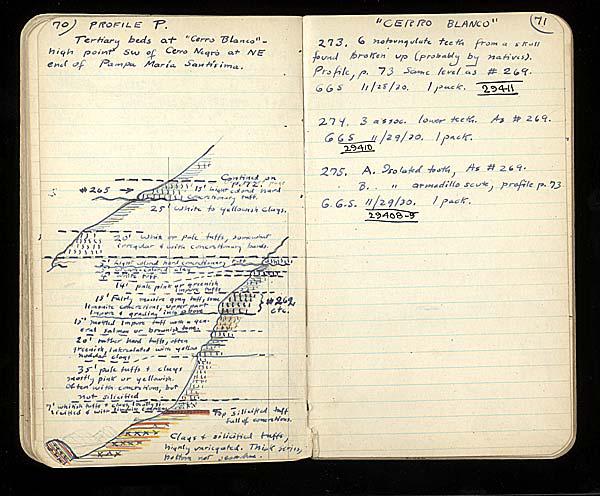 70) PROFILE P.
Tertiary beds at "Cerro Blanco"-
high point SW of Cerro Negro at NE
end of Pampa María Santísima.
Contined on
p. 72.
#265 → 15' light colored hard
concretionary tuff.
25' White to yellowish clays.
20' White or pale tuffs, somewhat
irregular & with concretionary bands.
5' light colored hard concretionary tuff
5' cream colored clay
4' white tuff.
14' pale pink or greenish
impure tuffs
15' Fairly massive gray tuff, some
limonite concretions, upper part
impure & grading into above
#269, etc.
15' mottled impure tuff with a gen-
eral salmon or brownish tone.
20' rather hard tuffs, often
greenish, intercalated with yellow
nodular clays
35' pale tuffs & clays
mostly pink or yellowish.
Often with concretions, but
not silicified
7' whitish tuffs & clays, locally si-
licified & with
Top silicified tuff
full of concretions.
Clays & silicified tuffs,
highly variegated. Thick series,
bottom not
"CERRO BLANCO" 71
273. 6 notoungulate teeth from a skull
found broken up (probably by natives).
Profile, p. 73 Same level as #269.
GGS 11/28/30. 1 pack. 29411
274. 3 assoc. lower teeth. As #269.
GGS 11/29/30. 1 pack.
29410
275. A. Isolated tooth, As #269.
B. " armadillo scute, profile p. 73
G.G.S. 11/29/30. 1 pack.
29408-9